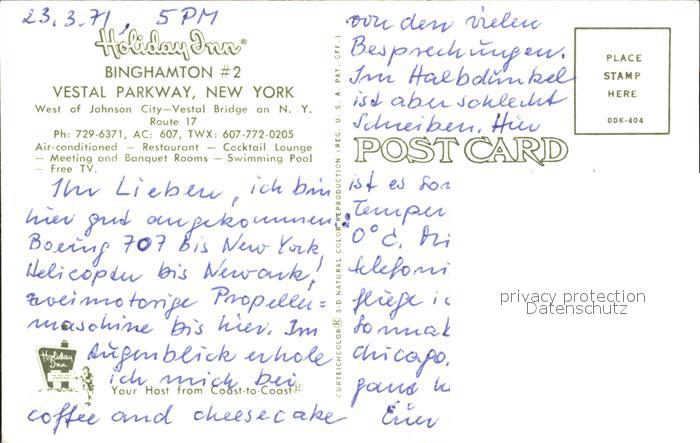 23.3.71, 5 PM
Holiday Inn®
BINGHAMTON #2
VESTAL PARKWAY, NEW YORK
West of Johnson City—Vestal Bridge on N. Y.
Route 17
Ph: 729-6371, AC: 607, TWX: 607-772-0205
Air-conditioned — Restaurant — Cocktail Lounge
— Meeting and Banquet Rooms — Swimming Pool
— Free TV.
Ihr Lieben, ich bin
hier gut angekommen.
Boeing 707 bis New York,
Helicopter bis Newark,
zweimotorige Propeller=
maschine bis hier. Im
Augenblick erhole
ich mich bei
coffee and cheesecake
Holiday Inn
Your Host from Coast-to-Coast®
CURTEICHCOLOR® 3-D NATURAL COLOR REPRODUCTION (REG. U. S. A. PAT. OFF.)
von den vielen
Besprechungen.
Im Halbdunkel
ist aber schlecht
schreiben. Hier
POST CARD
ist es
Temper
0°C.
telefoni
fliege
Chicago.
ganz
Euer
PLACE
STAMP
HERE
ODK-404
privacy protection
Datenschutz